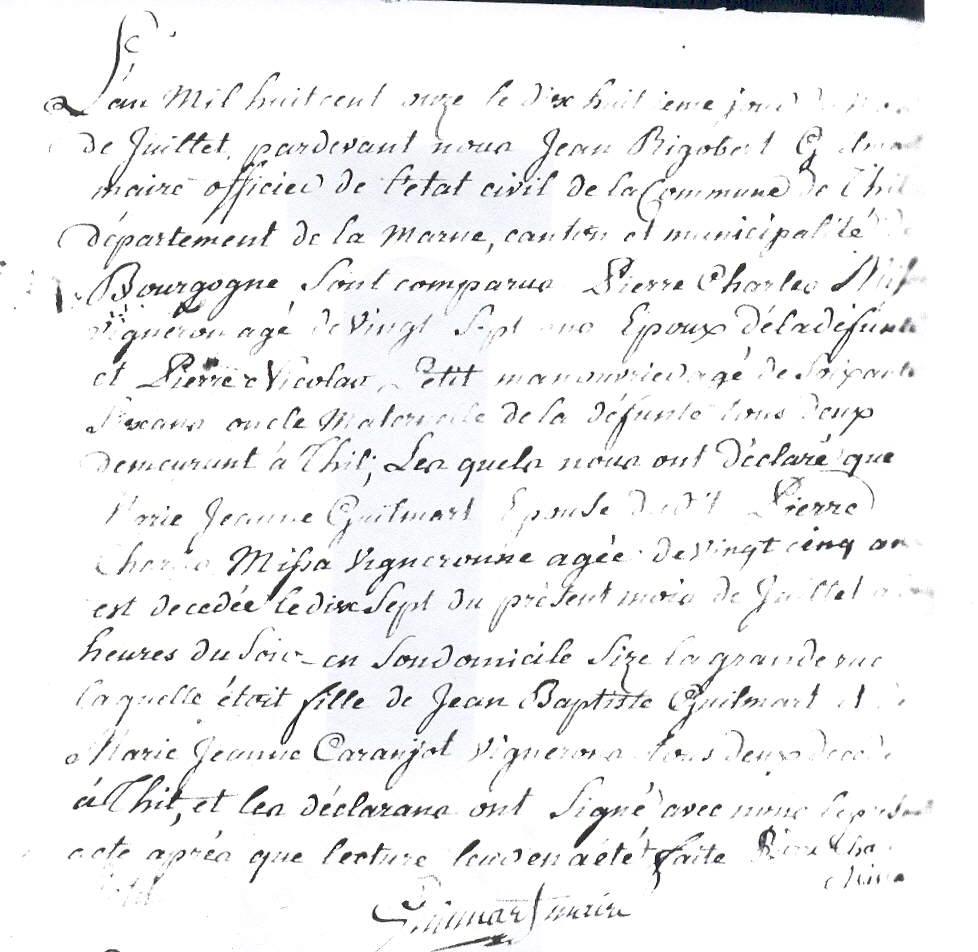 L'an Mil huit cent onze le dix huitieme jour du mois
de Juillet, pardevant nous Jean Rigobert Guilmart
maire officier de l'etat civil de la Commune de Thil
département de la Marne, canton et municipalité de
Bourgogne sont comparus Pierre Charles Missa
vigneron agé de vingt sept ans Epoux déladéfunte
et Pierre Nicolas Petit manouvrier agé de Soixante
Six ans oncle Maternele de la défunte tous deux
demeurant à Thil; Les quels nous ont déclaré que
Marie Jeanne Guilmart Epouse dudit Pierre
Charles Missa Vigneronne agée de vingt cinq ans
est decedée le dix Sept du présent mois de Juillet
heures du Soir en Son domicile Size la grande rue
laquelle étoit fille de Jean Baptiste Guilmart et de
Marie Jeanne Caranjot Vignerons tous deux decedé
à Thil, et les déclarans ont Signé avec nous le présent
acte après que lecture leur en a été faite Pierre Cha
Missa
Guilmart maire